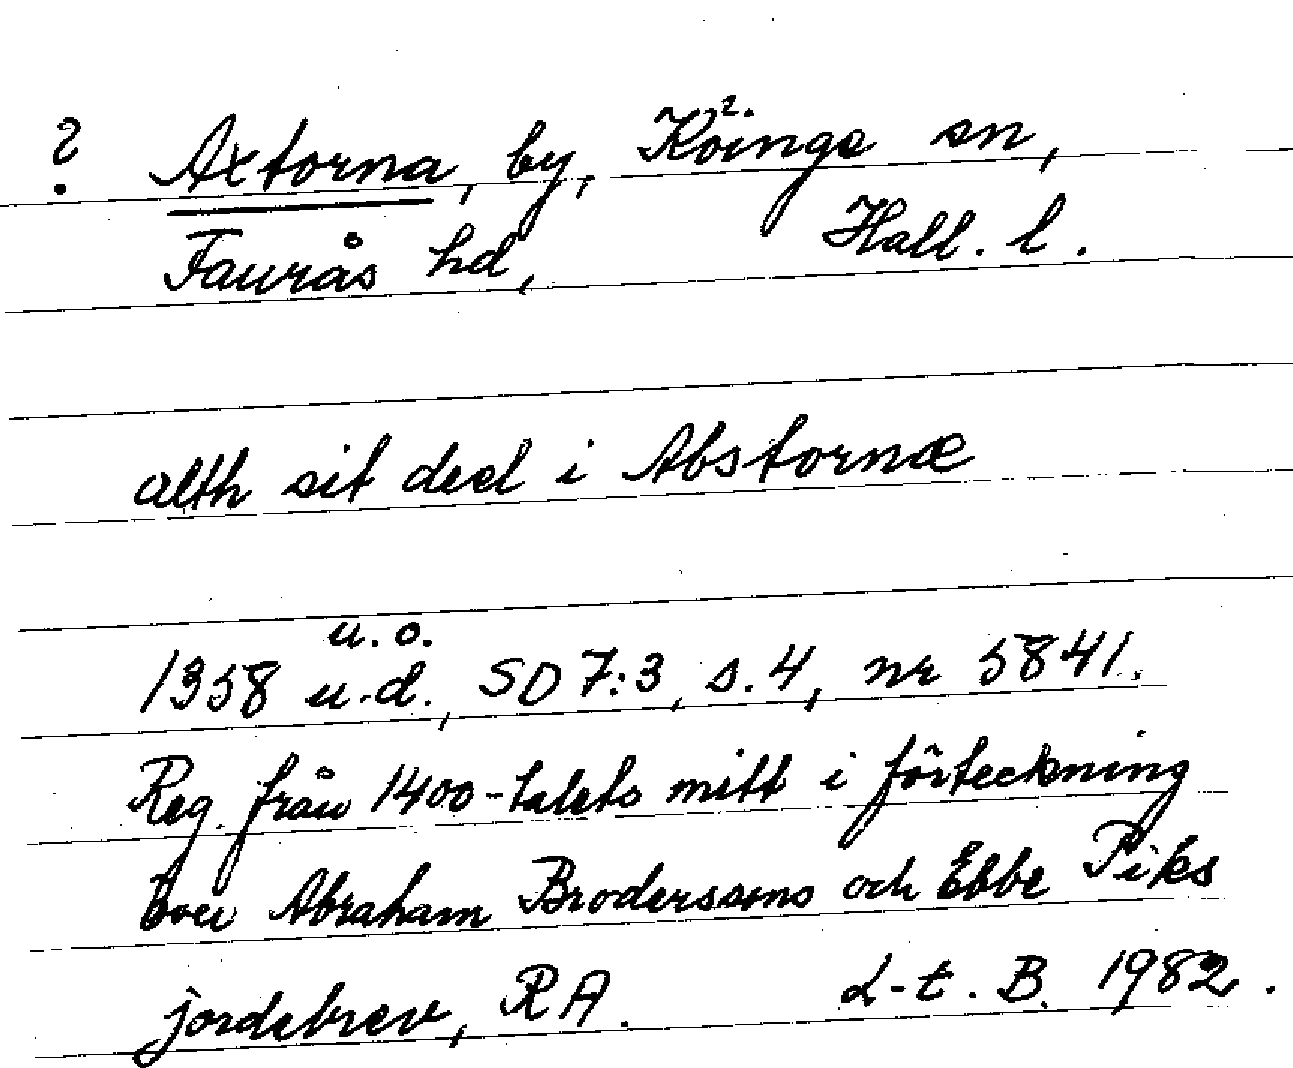 ? Axtorna, by, Köinge sn,
Faurås hd, Hall. l.
alth sit deel i Abstornæ
u. o.
1358 u.d., SD 7:3, s. 4, nr 5841.
Reg. från 1400-talets mitt i förteckning
över Abraham Brodersens och Ebbe Piks
jordebrev, RA. L-t. B. 1982.